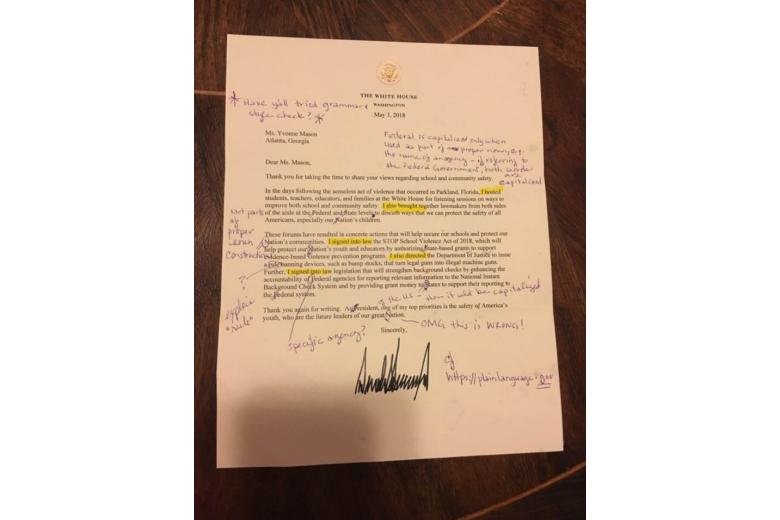 THE WHITE HOUSE
WASHINGTON
May 3, 2018
* Have y'all tried grammar &
style check? *
Ms. Yvonne Mason
Atlanta, Georgia
Federal is capitalized only when
used as part of proper noun, e.g.
the name of an agency - if referring to
the Federal Government, both words
are
capitalized
Dear Ms. Mason,
Thank you for taking the time to share your views regarding school and community safety.
In the days following the senseless act of violence that occurred in Parkland, Florida, I hosted
students, teachers, educators, and families at the White House for listening sessions on ways to
improve both school and community safety. I also brought together lawmakers from both sides
of the aisle at the Federal and State levels to discuss ways that we can protect the safety of all
Americans, especially our Nation's children.
Not part
of
proper
noun
construction
?
explain
"rule"
These forums have resulted in concrete actions that will help secure our schools and protect our
Nation's communities. I signed into law the STOP School Violence Act of 2018, which will
help protect our Nation's youth and educators by authorizing State-based grants to support
evidence-based violence prevention programs. I also directed the Department of Justice to issue
a rule banning devices, such as bump stocks, that turn legal guns into illegal machine guns.
Further, I signed into law legislation that will strengthen background checks by enhancing the
accountability of Federal agencies for reporting relevant information to the National Instant
Background Check System and by providing grant money to States to support their reporting to
the Federal system.
of the US - then it would be capitalized
Thank you again for writing. As President, one of my top priorities is the safety of America's
youth, who are the future leaders of our great Nation.
OMG this is WRONG!
specific agency?
Sincerely,
cf
https://plainlanguage.gov